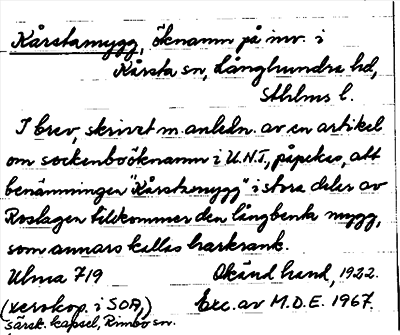 Kårstamygg, öknamn på inv. i
Kårsta sn, Långhundra hd,
Sthlms l.
I brev, skrivet m. anledn. av en artikel
om sockenboöknamn i U.N.T., påpekas, att
benämningen "Kårstamygg" i stora delar av
Roslagen tillkommer den långbenta mygg,
som annars kallas harkrank.
Ulma 719 Okänd hand, 1922.
(xerokop. i SOA, Exc. av M.D.E. 1967.
särsk. kapsel, Rimbo sn.